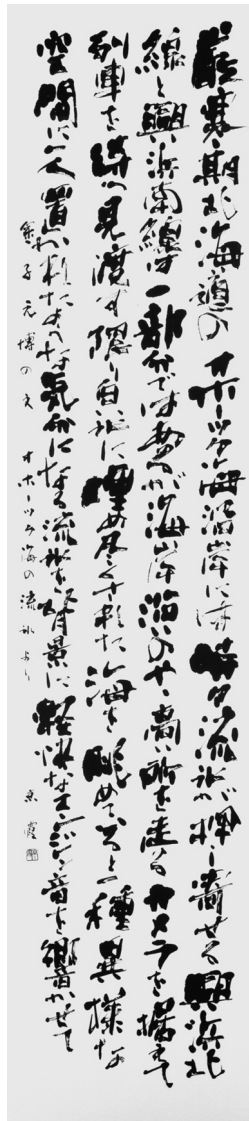 厳寒期北海道のオホーツク海沿岸には時々流氷が押し寄せる興浜北
線と興浜南線は一部分ではあるが海岸沿のやゝ高い所を走るカメラを据えて
列車を待つ見渡す限り白氷に埋め尽くされた海を眺めていると一種異様な
空間に一人置かれたような気分になる流氷を背景に軽快なエンジン音を響かせて
金子元博の文 オホーツク海の流氷より